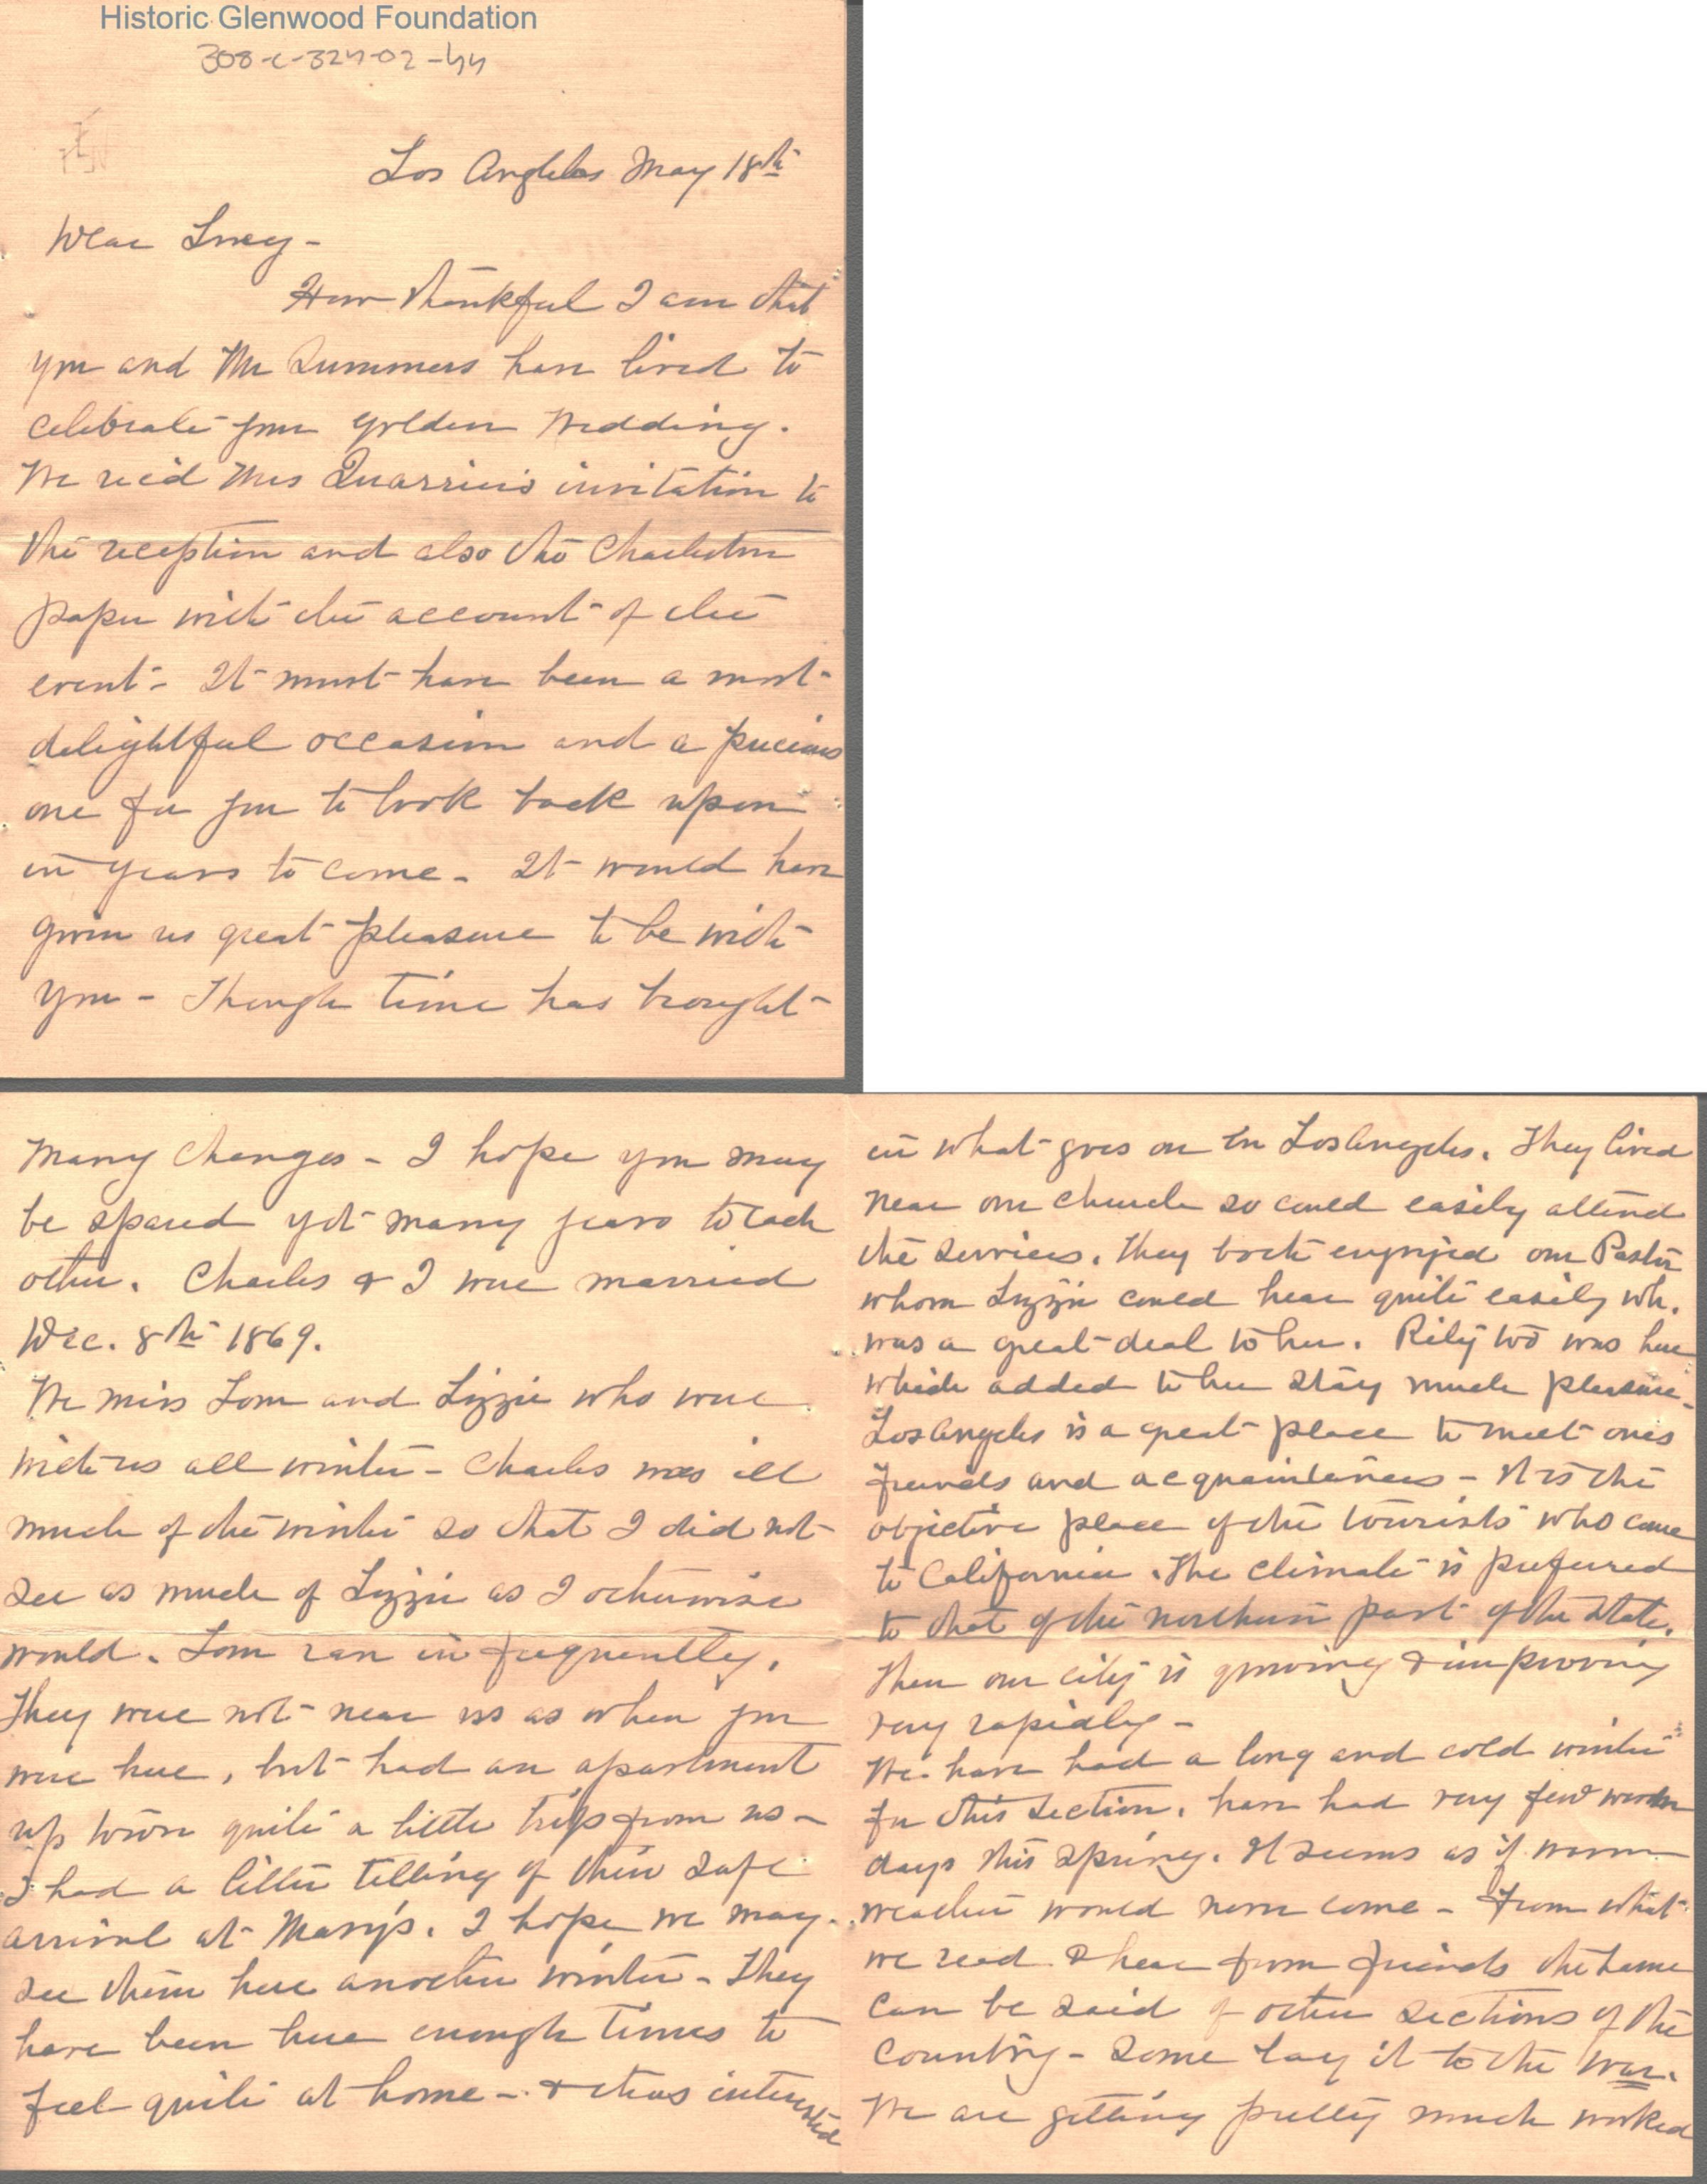 Historic Glenwood Foundation
308-C-324-02-44
Los Angeles May 18th
Dear Lucy -
How thankful I am that
you and Mr Summers have lived to
celebrate your golden Wedding.
We rec'd Mrs Quarrier's invitation to
the reception and also the Charleston
paper with the account of the
event - It must have been a most
delightful occasion and a precious
one for you to look back upon
in years to come - It would have
given us great pleasure to be with
you - Though time has brought
many changes - I hope you may
be spared yet many years to each
other. Charles & I were married
Dec. 8th 1869.
We miss Tom and Lizzie who were
with us all winter - Charles was ill
much of the winter so that I did not
see as much of Lizzie as I otherwise
would. Tom ran in frequently.
They were not near us as when you
were here, but had an apartment
up town quite a little trip from us -
I had a letter telling of their safe
arrival at Mary's. I hope we may
see them here another winter - They
have been here enough times to
feel quite at home - & thus interested
in what goes on in Los Angeles. They lived
near our church so could easily attend
the services. They both enjoyed our Pastor
whom Lizzie could hear quite easily wh.
was a great deal to her. Rily too was here
which added to her stay much pleasure.
Los Angeles is a great place to meet ones
friends and acquaintances - It is the
objective place of the tourists who come
to California. The climate is preferred
to that of the northern part of the State.
Then our city is growing & improving
very rapidly -
We have had a long and cold winter
for this section. have had very few warm
days this spring. It seems as if warm
weather would never come - From what
we read & hear from friends the same
can be said of other sections of the
country - Some lay it to the war.
We are getting pretty much worked